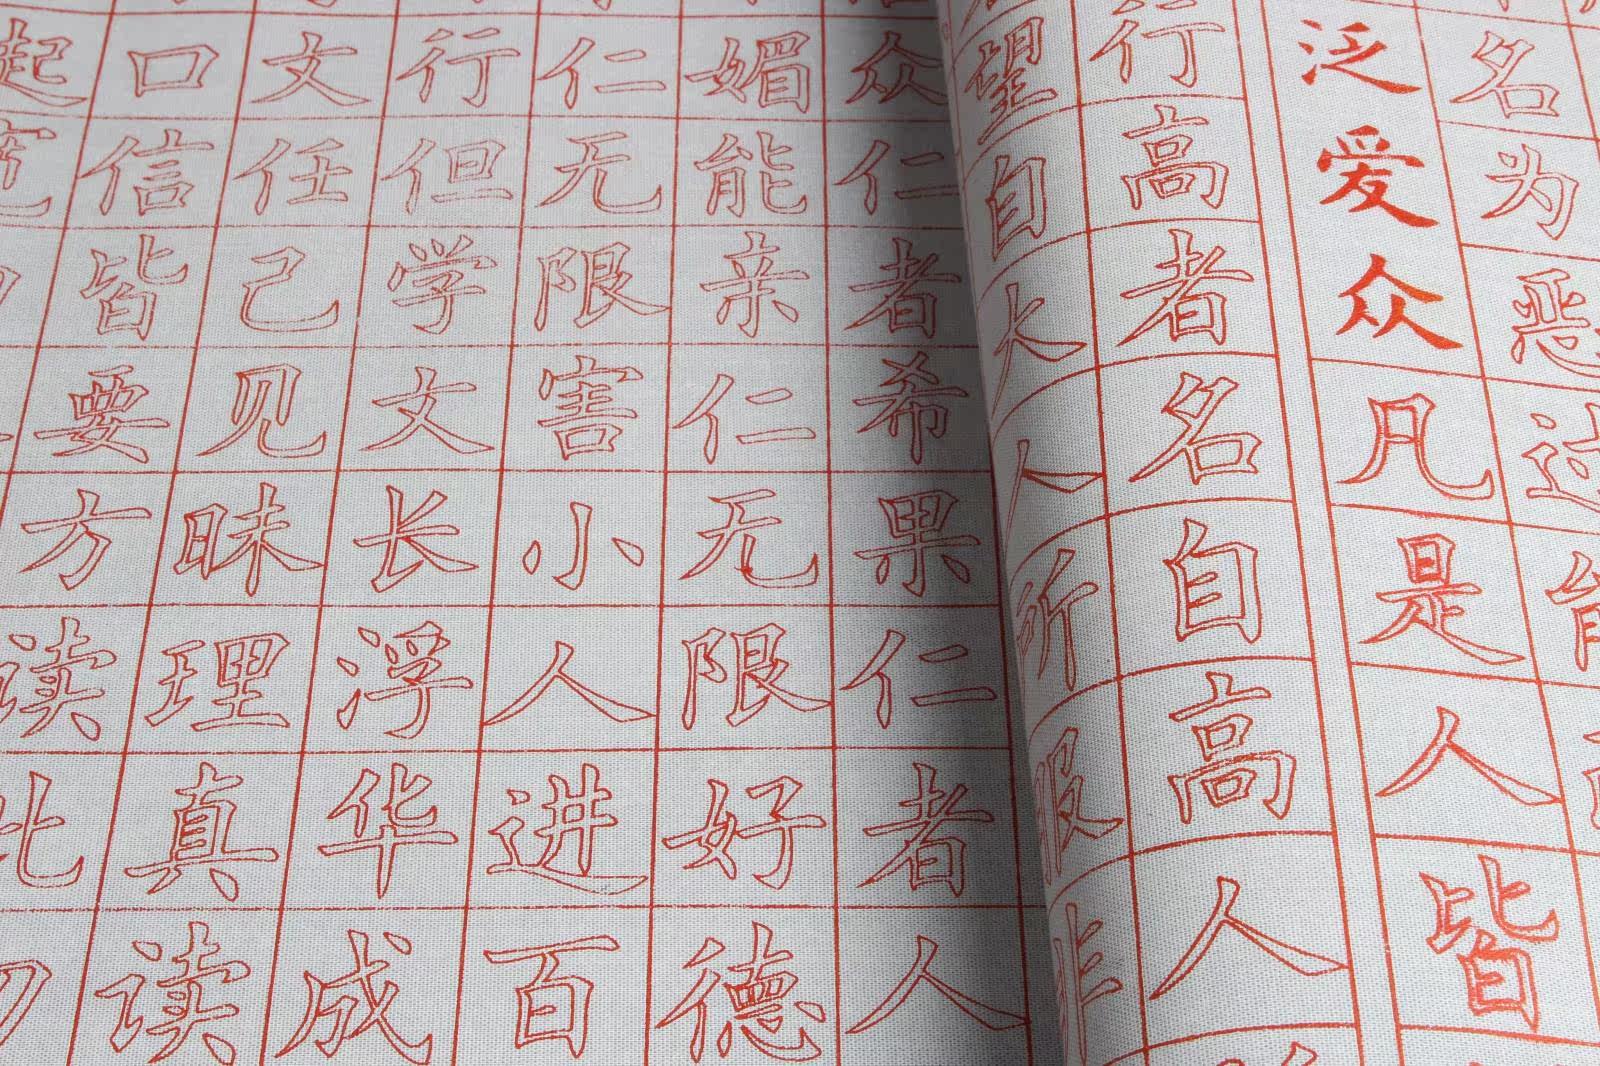 名为恶过能
泛爱众凡是人皆
行高者名自高人
望自大人所服非
众仁者希果仁者人
媚能亲仁无限好德
仁无限害小人进百
行但学文长浮华成
文任己见昧理真读
口信皆要方读此勿
起